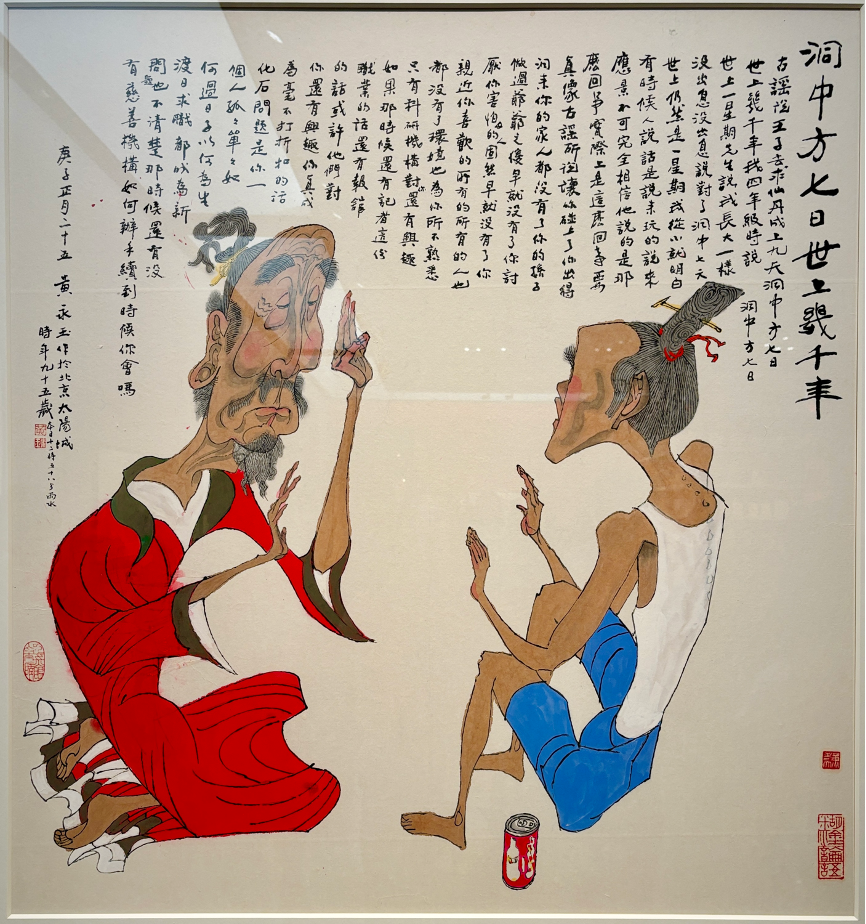 洞中方七日世上幾千年
古謠說王子去求仙丹成上九天洞中方七日
世上幾千年我四年級時說 洞中方七日
世上一星期先生說我長大一樣
沒出息沒出息說對了洞中七天
世上仍然是一星期我從小就明白
有時候人說話是說來玩的說來
應景不可完全相信他說的是那
麼回事實際上是這麼回事要
真像古謠所說讓你碰上了你出得
洞來你的家人都沒有了你的孫子
做過爺爺之後早就沒有了你討
厭你害怕的人固然早就沒有了你
親近你喜歡的所有的所有的人也
都沒有了環境也為你所不熟悉
只有科研機構對你還有興趣
如果那時候還有記者這份
職業的話還有報館
的話或許他們對
你還有興趣你真成
為毫不打折扣的活
化石問題是你一
個人孤々單々如
何過日子以何為生
渡日求職都成為新
問題也不清楚那時候還有沒
有慈善機構如何辦手續到時候你會嗎
庚子正月二十五 黃永玉作於北京太陽城
時年九十五歲